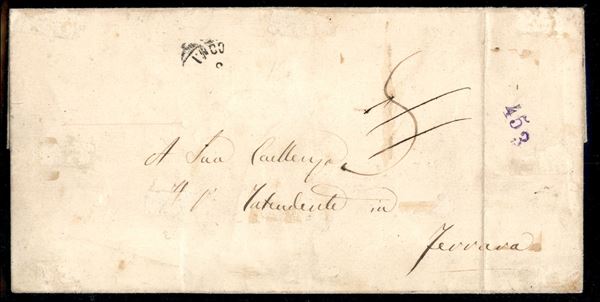 453
A Sua Eccellenza
Intendente in
Ferrara